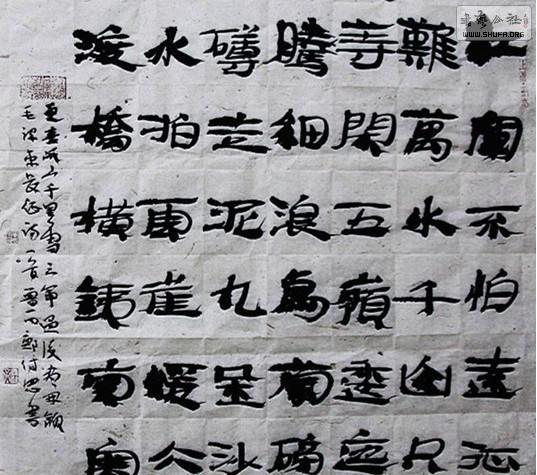 紅軍不怕遠征
難萬水千山只
等閑五嶺逶迤
騰細浪烏蒙磅
礴走泥丸金沙
水拍雲崖暖大
渡橋橫鐵索寒
更喜岷山千里雪三軍過後盡開顏
毛泽东長征詩一首書
WWW.SHUFA.ORG